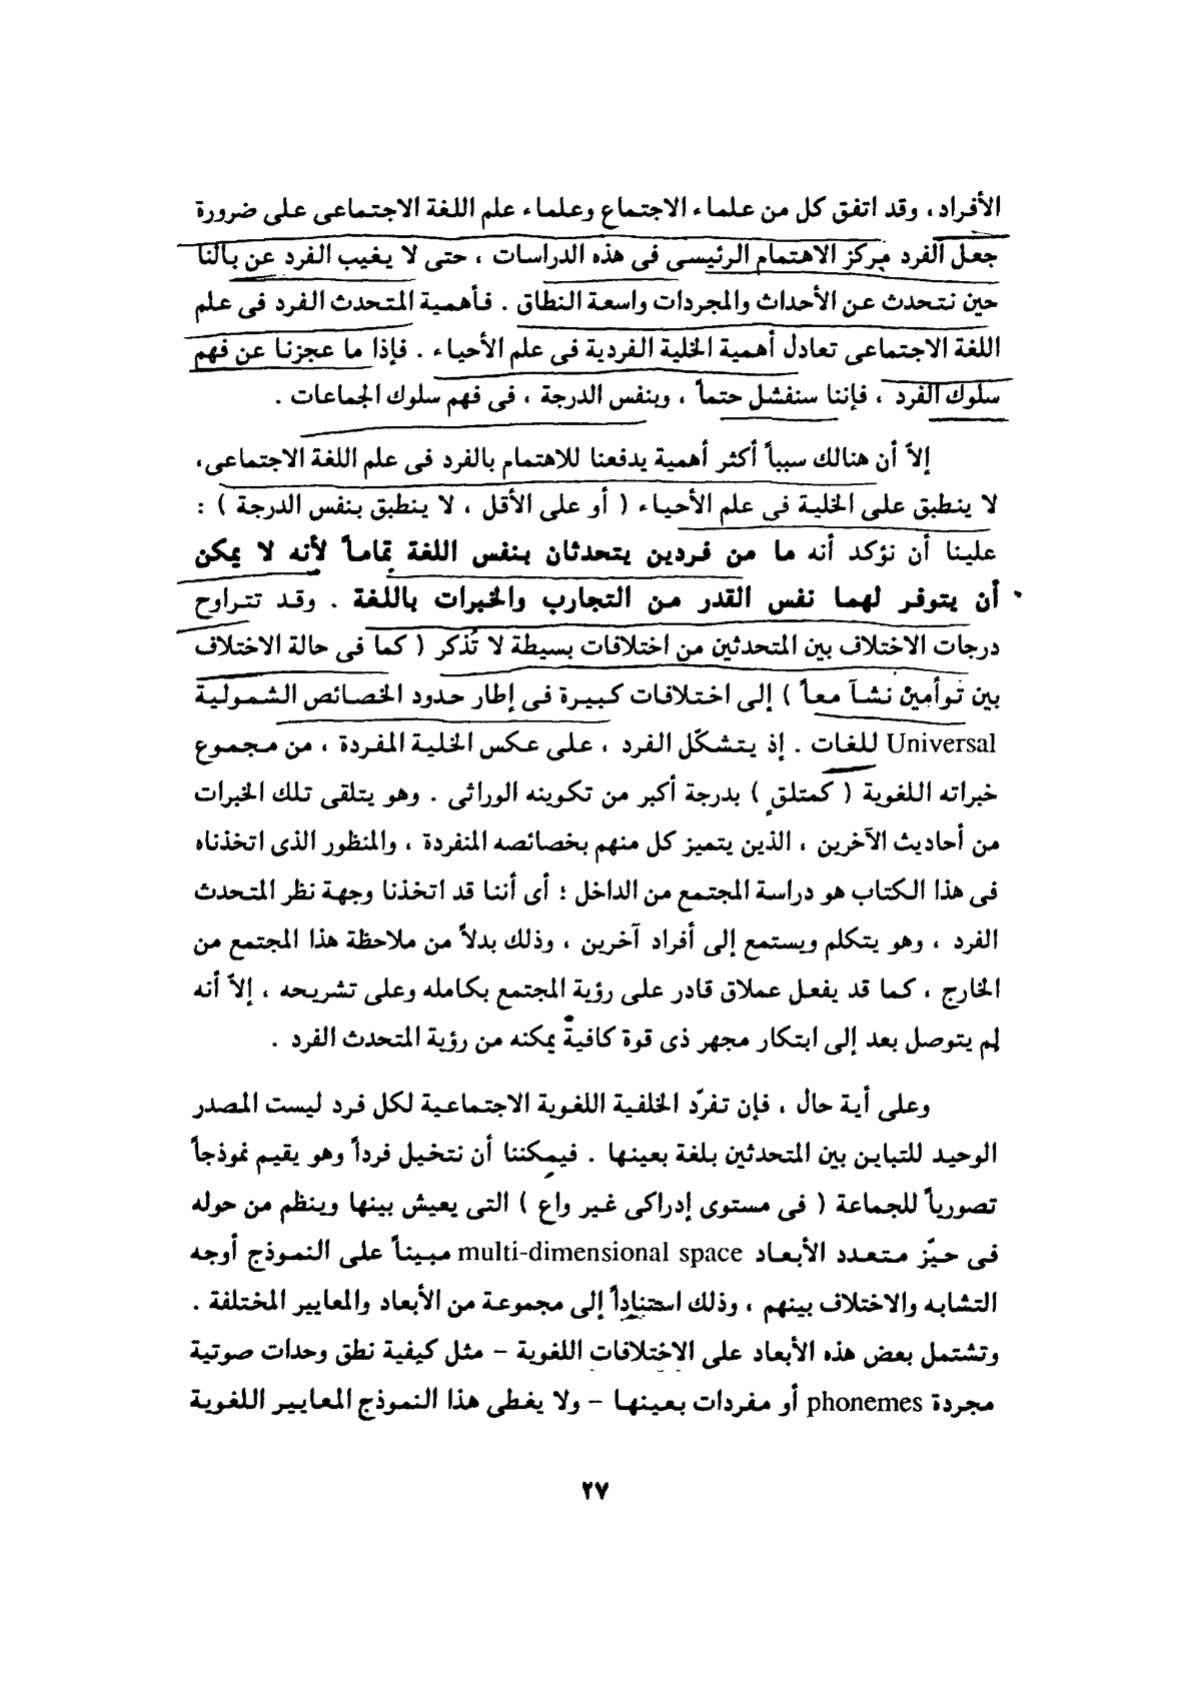 الأفراد ، وقد اتفق كل من علماء الاجتماع وعلماء علم اللغة الاجتماعى على ضرورة
جعل الفرد مركز الاهتمام الرئيسى فى هذه الدراسات ، حتى لا يغيب الفرد عن بالنا
حين نتحدث عن الأحداث والمجردات واسعة النطاق . فأهمية المتحدث الفرد فى علم
اللغة الاجتماعى تعادل أهمية الخلية الفردية فى علم الأحياء . فإذا ما عجزنا عن فهم
سلوك الفرد ، فإننا سنفشل حتماً ، وبنفس الدرجة ، فى فهم سلوك الجماعات .
إلاّ أن هنالك سبباً أكثر أهمية يدفعنا للاهتمام بالفرد فى علم اللغة الاجتماعى،
لا ينطبق على الخلية فى علم الأحياء ( أو على الأقل ، لا ينطبق بنفس الدرجة ) :
علينا أن نؤكد أنه ما من فردين يتحدثان بنفس اللغة تماماً لأنه لا يمكن
أن يتوفر لهما نفس القدر من التجارب والخبرات باللغة . وقد تتراوح
درجات الاختلاف بين المتحدثين من اختلافات بسيطة لا تُذكر ( كما فى حالة الاختلاف
بين توأمين نشآ معاً ) إلى اختلافات كبيرة فى إطار حدود الخصائص الشمولية
Universal للغات . إذ يتشكّل الفرد ، على عكس الخلية المفردة ، من مجموع
خبراته اللغوية ( كمتلقٍ ) بدرجة أكبر من تكوينه الوراثى . وهو يتلقى تلك الخبرات
من أحاديث الآخرين ، الذين يتميز كل منهم بخصائصه المنفردة ، والمنظور الذى اتخذناه
فى هذا الكتاب هو دراسة المجتمع من الداخل ؛ أى أننا قد اتخذنا وجهة نظر المتحدث
الفرد ، وهو يتكلم ويستمع إلى أفراد آخرين ، وذلك بدلاً من ملاحظة هذا المجتمع من
الخارج ، كما قد يفعل عملاق قادر على رؤية المجتمع بكامله وعلى تشريحه ، إلاّ أنه
لم يتوصل بعد إلى ابتكار مجهر ذى قوة كافية يمكنه من رؤية المتحدث الفرد .
وعلى أية حال ، فإن تفرّد الخلفية اللغوية الاجتماعية لكل فرد ليست المصدر
الوحيد للتباين بين المتحدثين بلغة بعينها . فيمكننا أن نتخيل فرداً وهو يقيم نموذجاً
تصورياً للجماعة ( فى مستوى إدراكى غير واع ) التى يعيش بينها وينظم من حوله
فى حيّز متعدد الأبعاد multi-dimensional space مبيناً على النموذج أوجه
التشابه والاختلاف بينهم ، وذلك استناداً إلى مجموعة من الأبعاد والمعايير المختلفة .
وتشتمل بعض هذه الأبعاد على الاختلافات اللغوية – مثل كيفية نطق وحدات صوتية
مجردة phonemes أو مفردات بعينها – ولا يغطى هذا النموذج المعايير اللغوية
٢٧